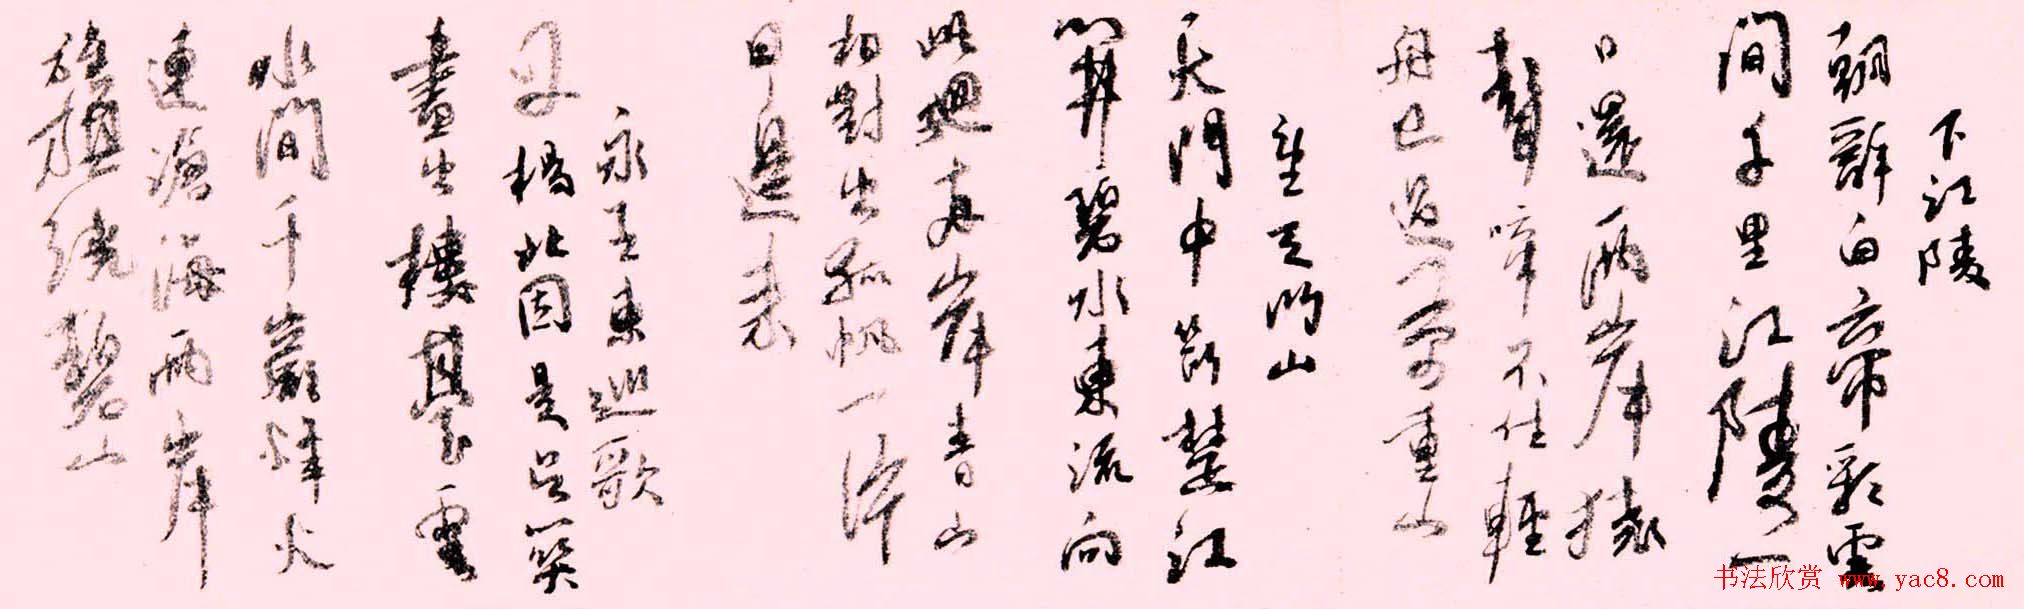 下江陵
朝辭白帝彩雲
間千里江陵一
日還兩岸猿
聲啼不住輕
舟已過萬重山
望天門山
天門中斷楚江
開碧水東流向
此迴兩岸青山
相對出孤帆一片
日邊來
永王東巡歌
丹楊北固是吳關
畫出樓臺雲
水間千巖烽火
連滄海兩岸
旌旗繞碧山
书法欣赏 www.yac8.com